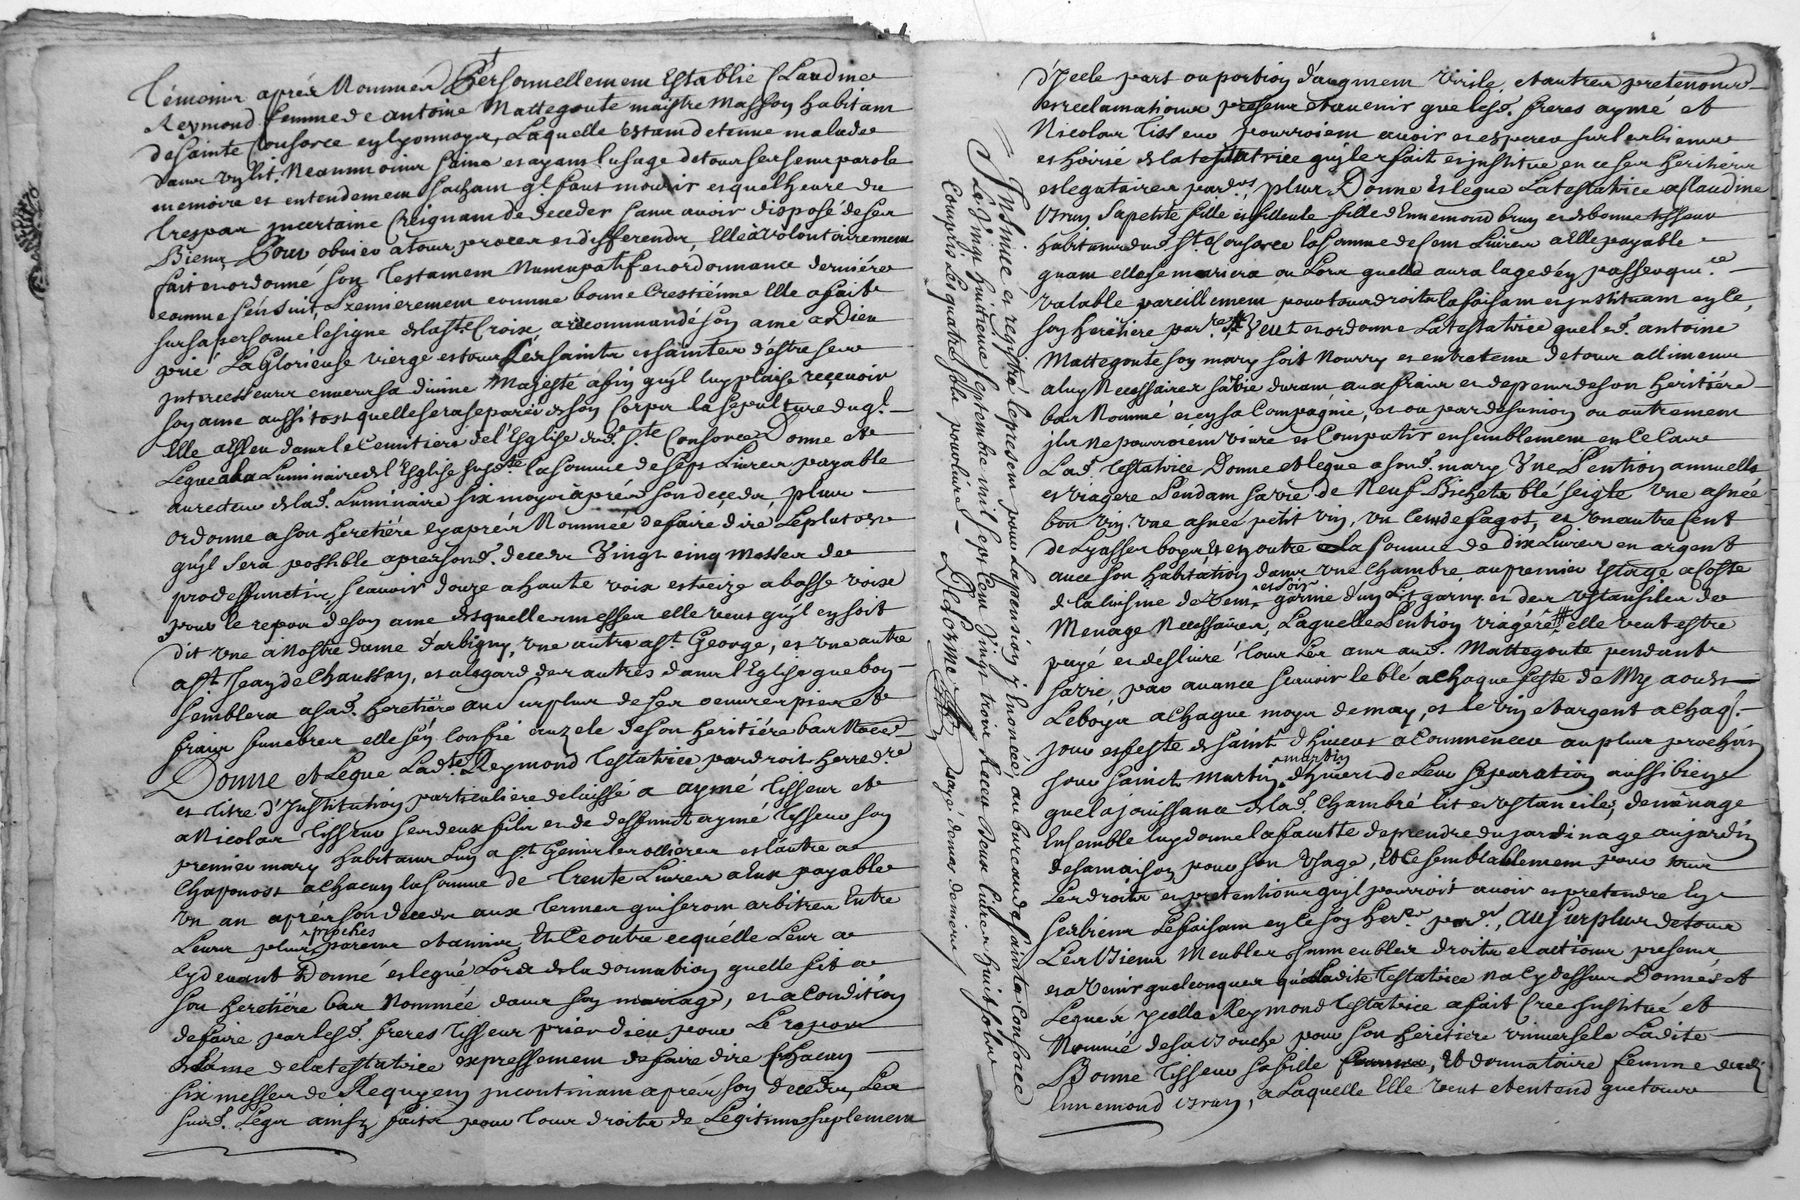 Témoins aprés Nommés Personnellement Establie Claudine
Reymond femme de antoine Mattegoute maistre Masson habitant
de sainte Consorce en lyonnoys, Laquelle estant detenue malade
dans un lit Neanmoins saine et ayant l'usage de tous ses sens parole
memoire et entendement sachant qt. faut mourir et que l'heure du
trespas incertaine Creignant de deceder sans avoir disposé de ses
Biens, Pour obvier a tous proces et differends, Elle à volontairement
fait et ordonné son Testament Nuncupatif et ordonnance derniére
comme s'ensuit, Premierement comme bonne Crestiénne Elle a fait
sur sa personne le signe de la Ste. Croix, a recommandé son ame a Dieu
prié La Glorieuse Vierge et tous Les saints et saintes d'estre ses
Intercesseurs envers sa divine Majesté afin qu'jl luy plaise recevoir
son ame aussitost quelle sera separéé de son Corps la sepulture duql.
Elle a Esleu dans le Cemitiere de l'Esglise dud. Ste Consorce Donne et
Legue a la Luminaire de l'Esglise susd.te la somme de sept Livres payable
au recteur de lad. Luminaire six moys aprés son decedz, plus
ordonne a son heretiére cy aprés Nommée de faire dire Le plutost
qu'jl sera possible apres sond. decedz Vingt cinq Messes de
pro deffunctis scavoir douze a haute voix et treize a basse voix
pour le repos de son ame desquelles messes elle veut qu'jl en soit
dit une a Nostre dame d'arbigny, une autre a St. George, et une autre
a St. Jean de Chaussan, et a legard des autres dans l'Eglise que bon
semblera a sad. heretiére au surplus de ses oeuvres pies et
fraix funebres elle s'en confie au zele de son heritiére bas Nomée
Donne et Legue Lad.te Reymond Testatrice par droit herred.re
et titre d'Institution particuliere delaissé a aymé Tisseur et
a Nicolas Tisseur ses deux fils et de deffunct aymé Tisseur son
premier mary habitans Lun a St. Genis les ollieres et l'autre a
Chaponost a chacun la somme de trente Livres a Eux payable
Un an aprés son decedz aux termes qui seront arbitrés Entre
Leurs plus proches parens et amis, Et Ce outre ce qu'elle Leur a
cy devant donné et legué Lors de la donnation quelle fit a
son heretiére bas Nommée dans son mariage, et a Condition
de faire par lesd. freres Tisseur prier dieu pour Le repos
de Lame de la testatrice expressement de faire dire Chacun
six messes de Requyem incontinant aprés son decedz, Les
susd. Legs ainsy faits pour tous droits de Legitime suplement
Insinué et registré le present pour La pension y Enoncée, au bureau de sainte Consorce
Le Vingt huitieme septembre mil sept Cent vingt trois Receu deux livres huit sols
Compris Les quatre sols pour livre Delorme
d'Jcelle part ou portion d'augment Virile, et autres pretentions
et reclamations presens et avenir que lesd. freres aymé et
Nicolas Tisseur pourroient avoir et esperer sur les biens
et hoirie de la testatrice qu'jl les fait et institue en ce ses heritiers
et legataires par.rs, plus Donne et legue La testatrice a Claudine
brun sa petite fille et filleule fille d'Ennemond brun et de bonne tisseur
habitans dud. Ste. Consorce la somme de sent Livres a Elle payable
quant elle se mariera ou Lors quelle aura lage d'en passer quit.ce
valable pareillement pour tous droits la faisant et instituant en ce
son heretiere par.re Veut et ordonne La testatrice que led. antoine
Mattegoute son mary soit Nourry et entretenu de tous allimens
a luy Necessaires sa vie durant aux fraix et depens de son heritiére
bas Nommé et en sa Compagnié, et ou par desunion ou autrement
jls ne pourroient vivre et Compatir ensemblement en Ce Cas
Lad. testatrice Donne et legue a sond. mary Une Pention annuelle
et viagere Pendant sa vie de Neuf Bichets blé seigle une asnée
bon vin une asneé petit vin, un Cent de fagots, et un autre Cent
de Lyasses boys Et en outre La somme de dix Livres en argent
avec son habitation dans une Chambre au premier Estage a Coste
de la Cuisine garnie d'un Lit garny et des ustansiles de
Menage Necessaires, Laquelle Pention viagéré elle veut estre
payé et deslivré tous Les ans aud. Mattegoute pendant
sa vie, par avance scavoir le blé a Chaque feste de My aoust
Le boys a chaque moys de may, et le vin et argent a chaq.
jour et feste de saint martin d'hivers a Commencer au plus prochain
jour sainct Martin d'hivers de Leur separation aussibien
que la jouissance de lad. Chambré lit et ustanciles de ménage
Ensemble luy donne la faculté de prendre du jardinage au jardin
de sa maison pour son Usage, Et Ce semblablement pour tous
Les droits et pretentions qu'jl pourroit avoir et pretendre sur
ses biens Le faisant en ce son Her.er par.er, Au surplus de tous
Les Biens Meubles Immeubles droits et actions presens
et a venir quelconques que Ladite testatrice n'a Cy dessus Donnés et
Legués ycelle Reymond Testatrice a fait Creé Institué et
Nommé de sa Bouche pour son heritiere universele Ladite
Bonne Tisseur sa fille, Et donnataire femme dud.
Ennemond Brun, a Laquelle Elle veut et entend que tous